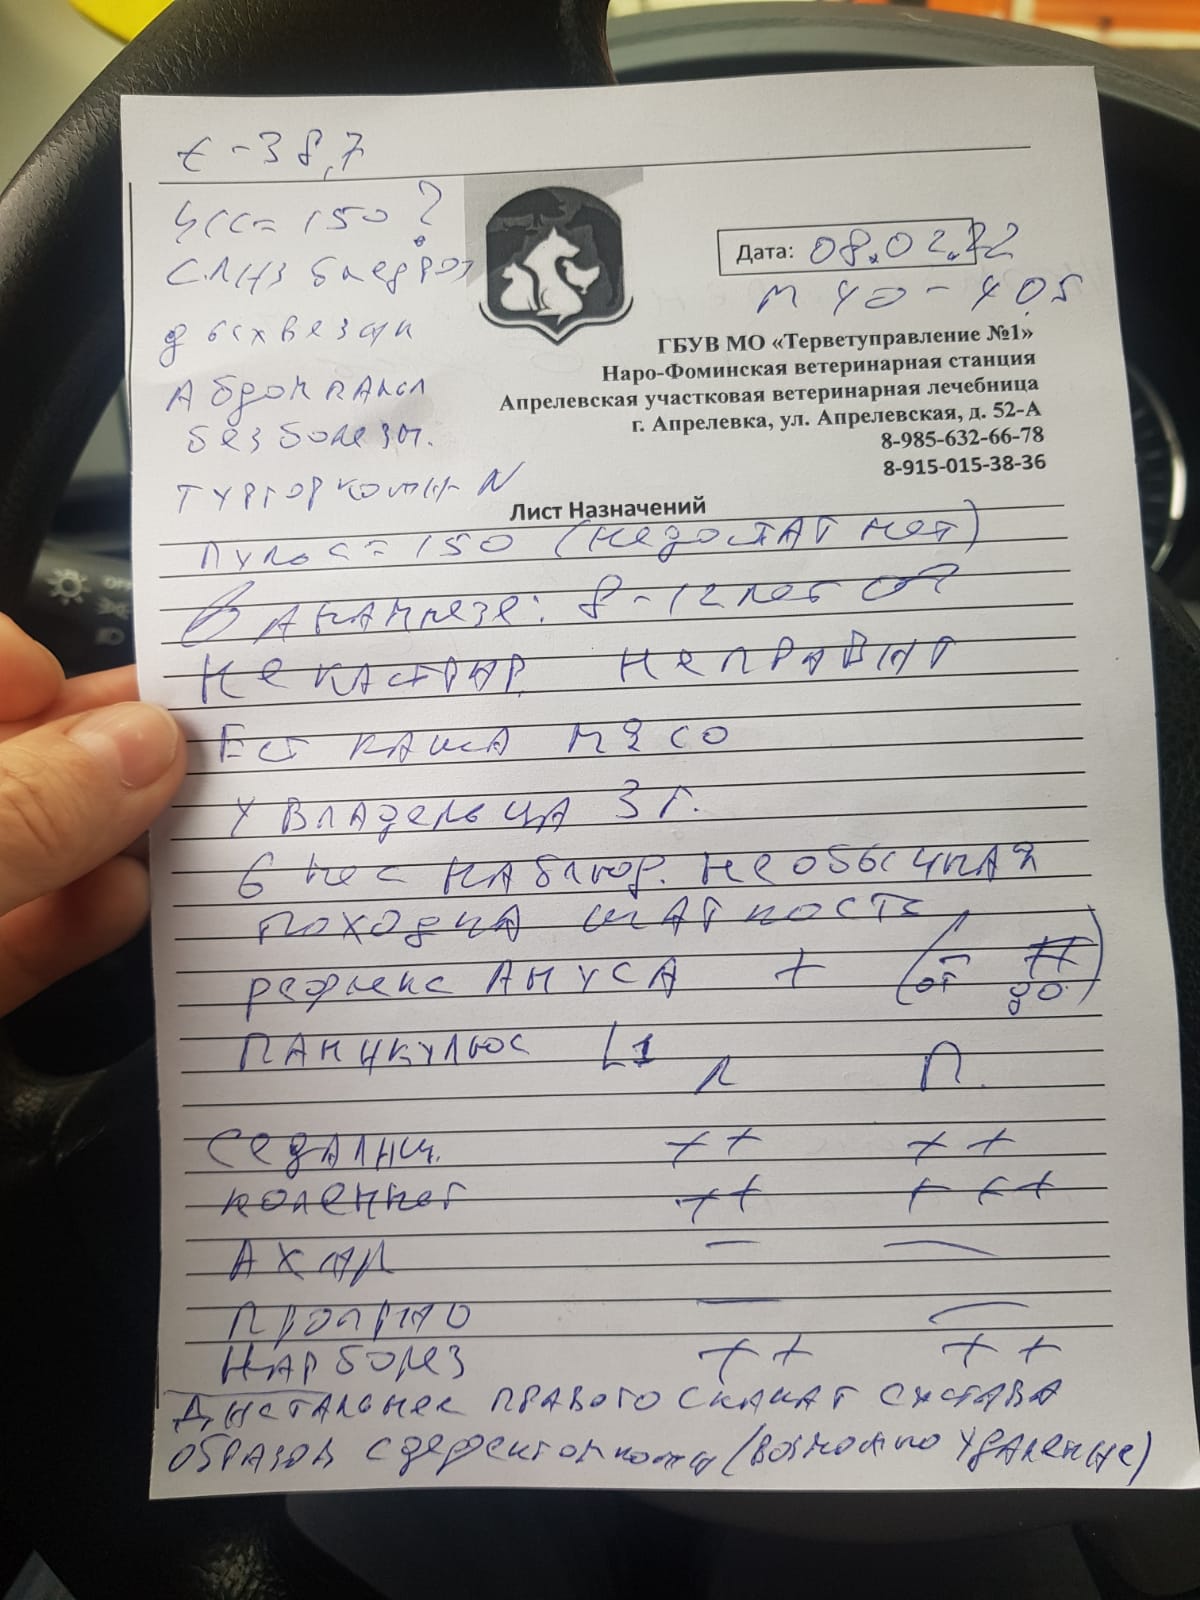 t - 38,7
ЧСС = 150 ?
Слиз бледроз
дых везик
Абдом пальп
безболезн.
тургор кожи - N
Дата: 08.02.22
м 40 - 40,5
ГБУВ МО «Терветуправление №1»
Наро-Фоминская ветеринарная станция
Апрелевская участковая ветеринарная лечебница
г. Апрелевка, ул. Апрелевская, д. 52-А
8-985-632-66-78
8-915-015-38-36
Лист Назначений
Пульс = 150 (недостат нет)
В анамнезе: 8-12 лет
не кастрир. не привит
Ест каша мясо
У владельца 3 г.
6 мес наблюд. необычная
походка шаткость
рефлекс ануса + (от до ++)
Паникулюс L1
Л П
седалищ. ++ ++
коленног ++ +++
Ахил — —
проприо — —
нар болез ++ ++
Дистальнее правого скакат сустава
образов с дефектом кожи (возможно удаление)